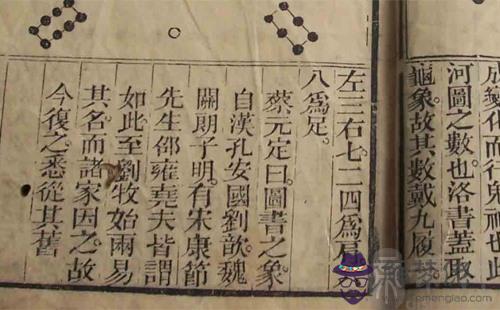 成變化而行鬼神也此
河圖之數也洛書蓋取
龜象故其數戴九履
左三右七二四爲肩六
八爲足。
蔡元定曰圖書之象
自漢孔安國劉歆魏
關朗子明。有宋康節
先生邵雍堯夫皆謂
如此至劉牧始兩易
其名。而諸家因之。故
今復之悉從其舊